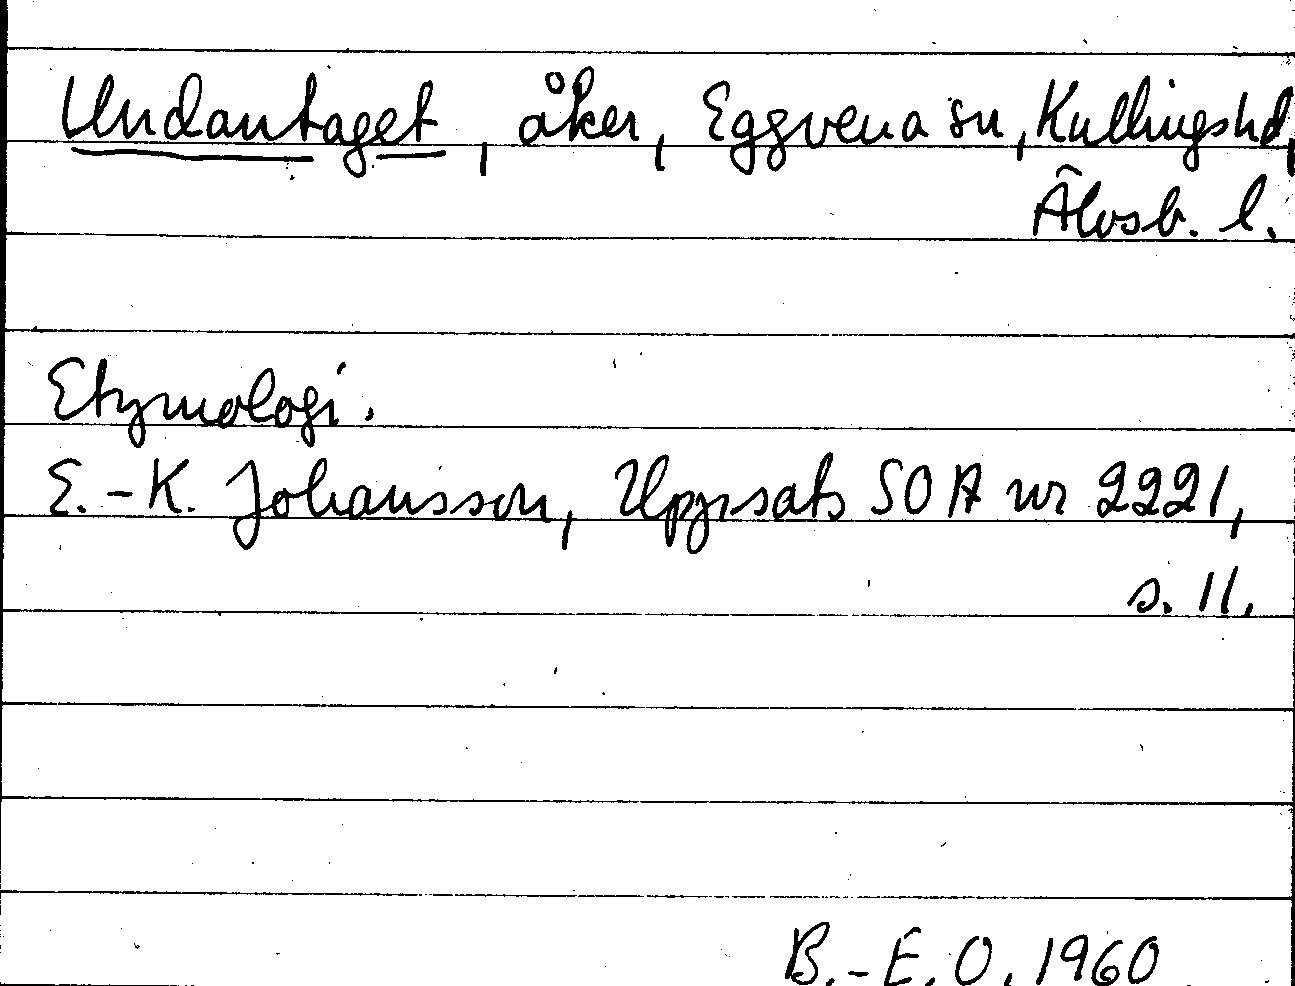 Undantaget, åker, Eggvena sn, Kullingshd,
Älvsb. l.
Etymologi.
E.-K. Johansson, Uppsats SOA nr 2221,
s. 11.
B.-E.O. 1960